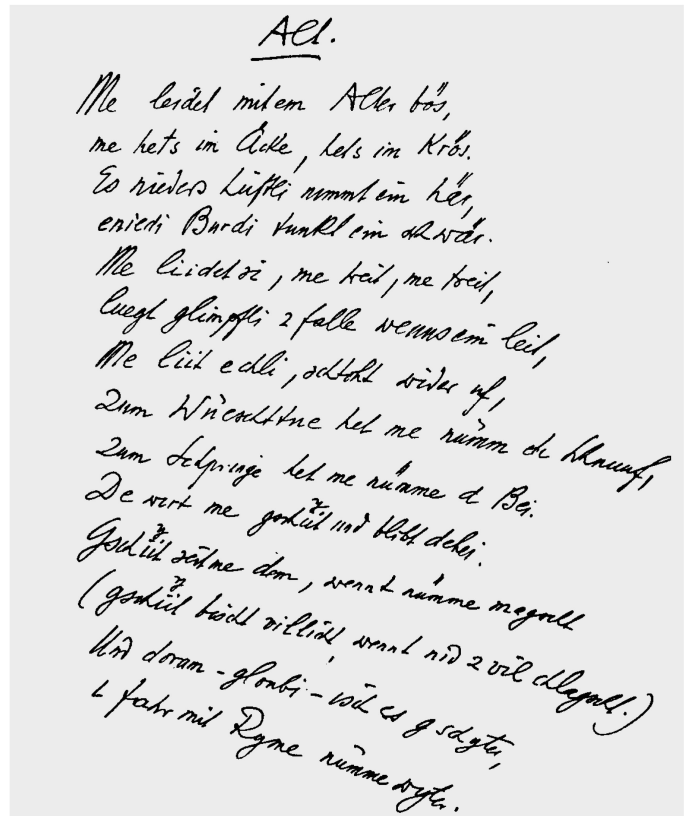 Alt.
Me leidet mit em Alter bös,
me hets im Äcke, hets im Krös.
Es nieders Lüftli nimmt ein här,
e niedi Burdi tunkt ein schwär.
Me liidet si, me treit, me treit,
luegt glimpfli z falle wenns ein leit,
Me liit echli, schtoht wider uf,
Zum Wüeschttue het me nümm de Schnuuf,
Zum Schpringe het me nümme d Bei.
De wirt me gschyt und blibt dehei.
Gschyt seit me dem, wennt nümme magscht
(gschyt bischt villicht, wennt nid z vil chlagscht.)
Und dorum - gloubi - isch es gschyter,
I fahr mit Ryme nümme wyter.